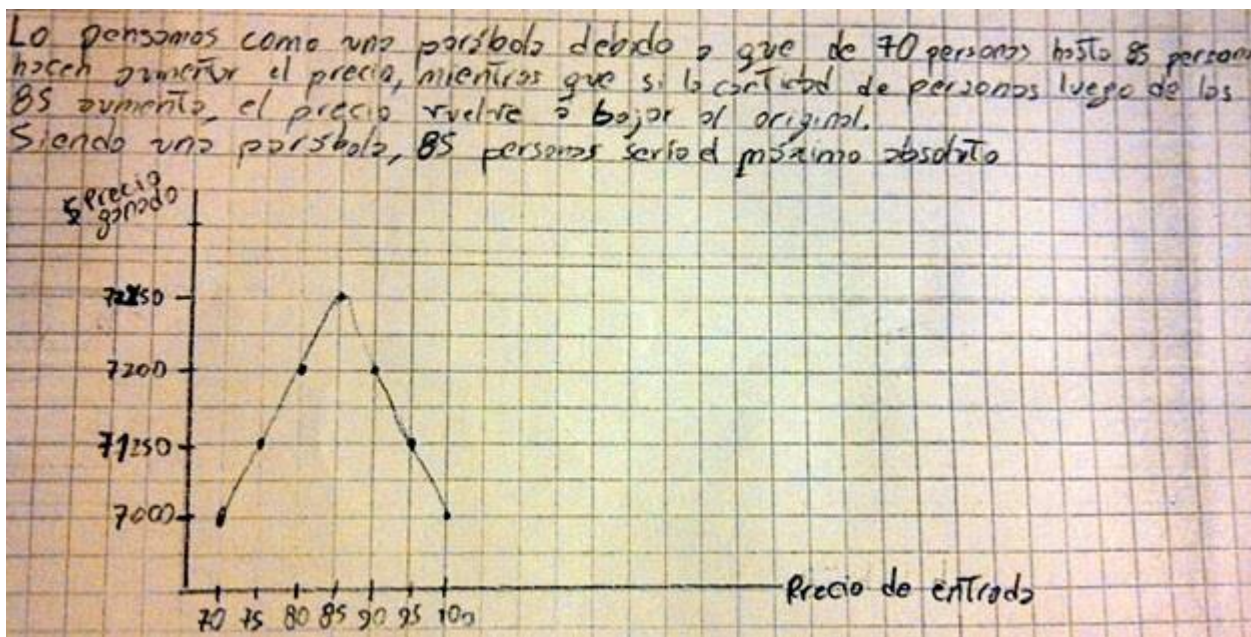 Lo pensamos como una parábola debido a que de 70 personas hasta 85 person
hacen aumentar el precio, mientras que si la cantidad de personas luego de las
85 aumenta, el precio vuelve a bajar al original.
Siendo una parábola, 85 personas sería el máximo absoluto
$ Precio
ganado
7200
7000
Precio de entrada
70 75 80 85 90 95 100